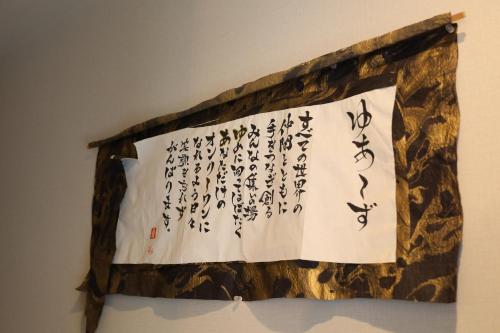 ゆあ〜ず
すべての世界の
仲間とともに
手をつなぎ創る
みんなの葉の場
ゆめに向てはばたく
あなただけの
オンリーワンに
なれるよう日々
笑顔を忘れず
がんばります。